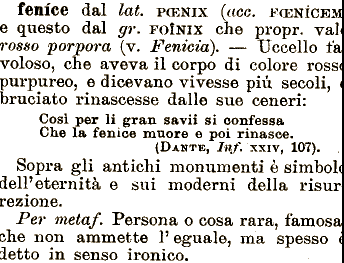 feníce dal lat. PŒNIX (acc. FŒNÍCEM
e questo dal gr. FOÎNIX che propr. val
rosso porpora (v. Fenicia). — Uccello fa
voloso, che aveva il corpo di colore ross
purpureo, e dicevano vivesse più secoli,
bruciato rinascesse dalle sue ceneri:
Così per li gran savii si confessa
Che la fenice muore e poi rinasce.
(DANTE, Inf. XXIV, 107).
Sopra gli antichi monumenti è simbol
dell'eternità e sui moderni della risur
rezione.
Per metaf. Persona o cosa rara, famosa
che non ammette l'eguale, ma spesso è
detto in senso ironico.